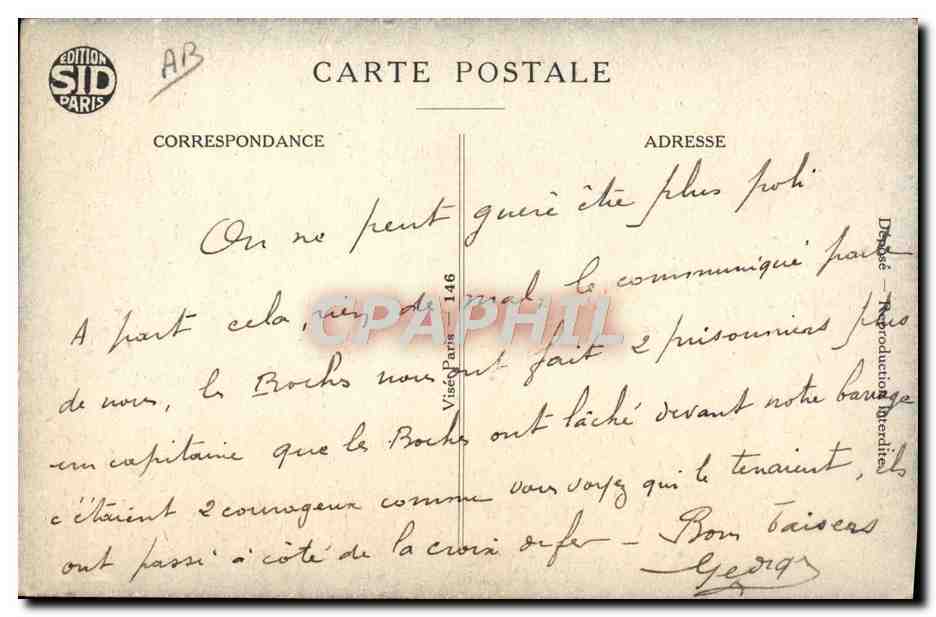 EDITION
SID
PARIS
AB
CARTE POSTALE
CORRESPONDANCE
ADRESSE
On ne peut guère être plus poli
A part cela, rien de mal, le communiqué parle
de nous, les Boches nous ont fait 2 prisonniers plus
un capitaine que les Boches ont lâché devant notre barrage
c'étaient 2 courageux comme vous voyez qui le tenaient, ils
ont passé à côté de la croix de fer – Bons Baisers
Georges
Visé Paris – 146
Déposé – Reproduction Interdite
CPAPHIL